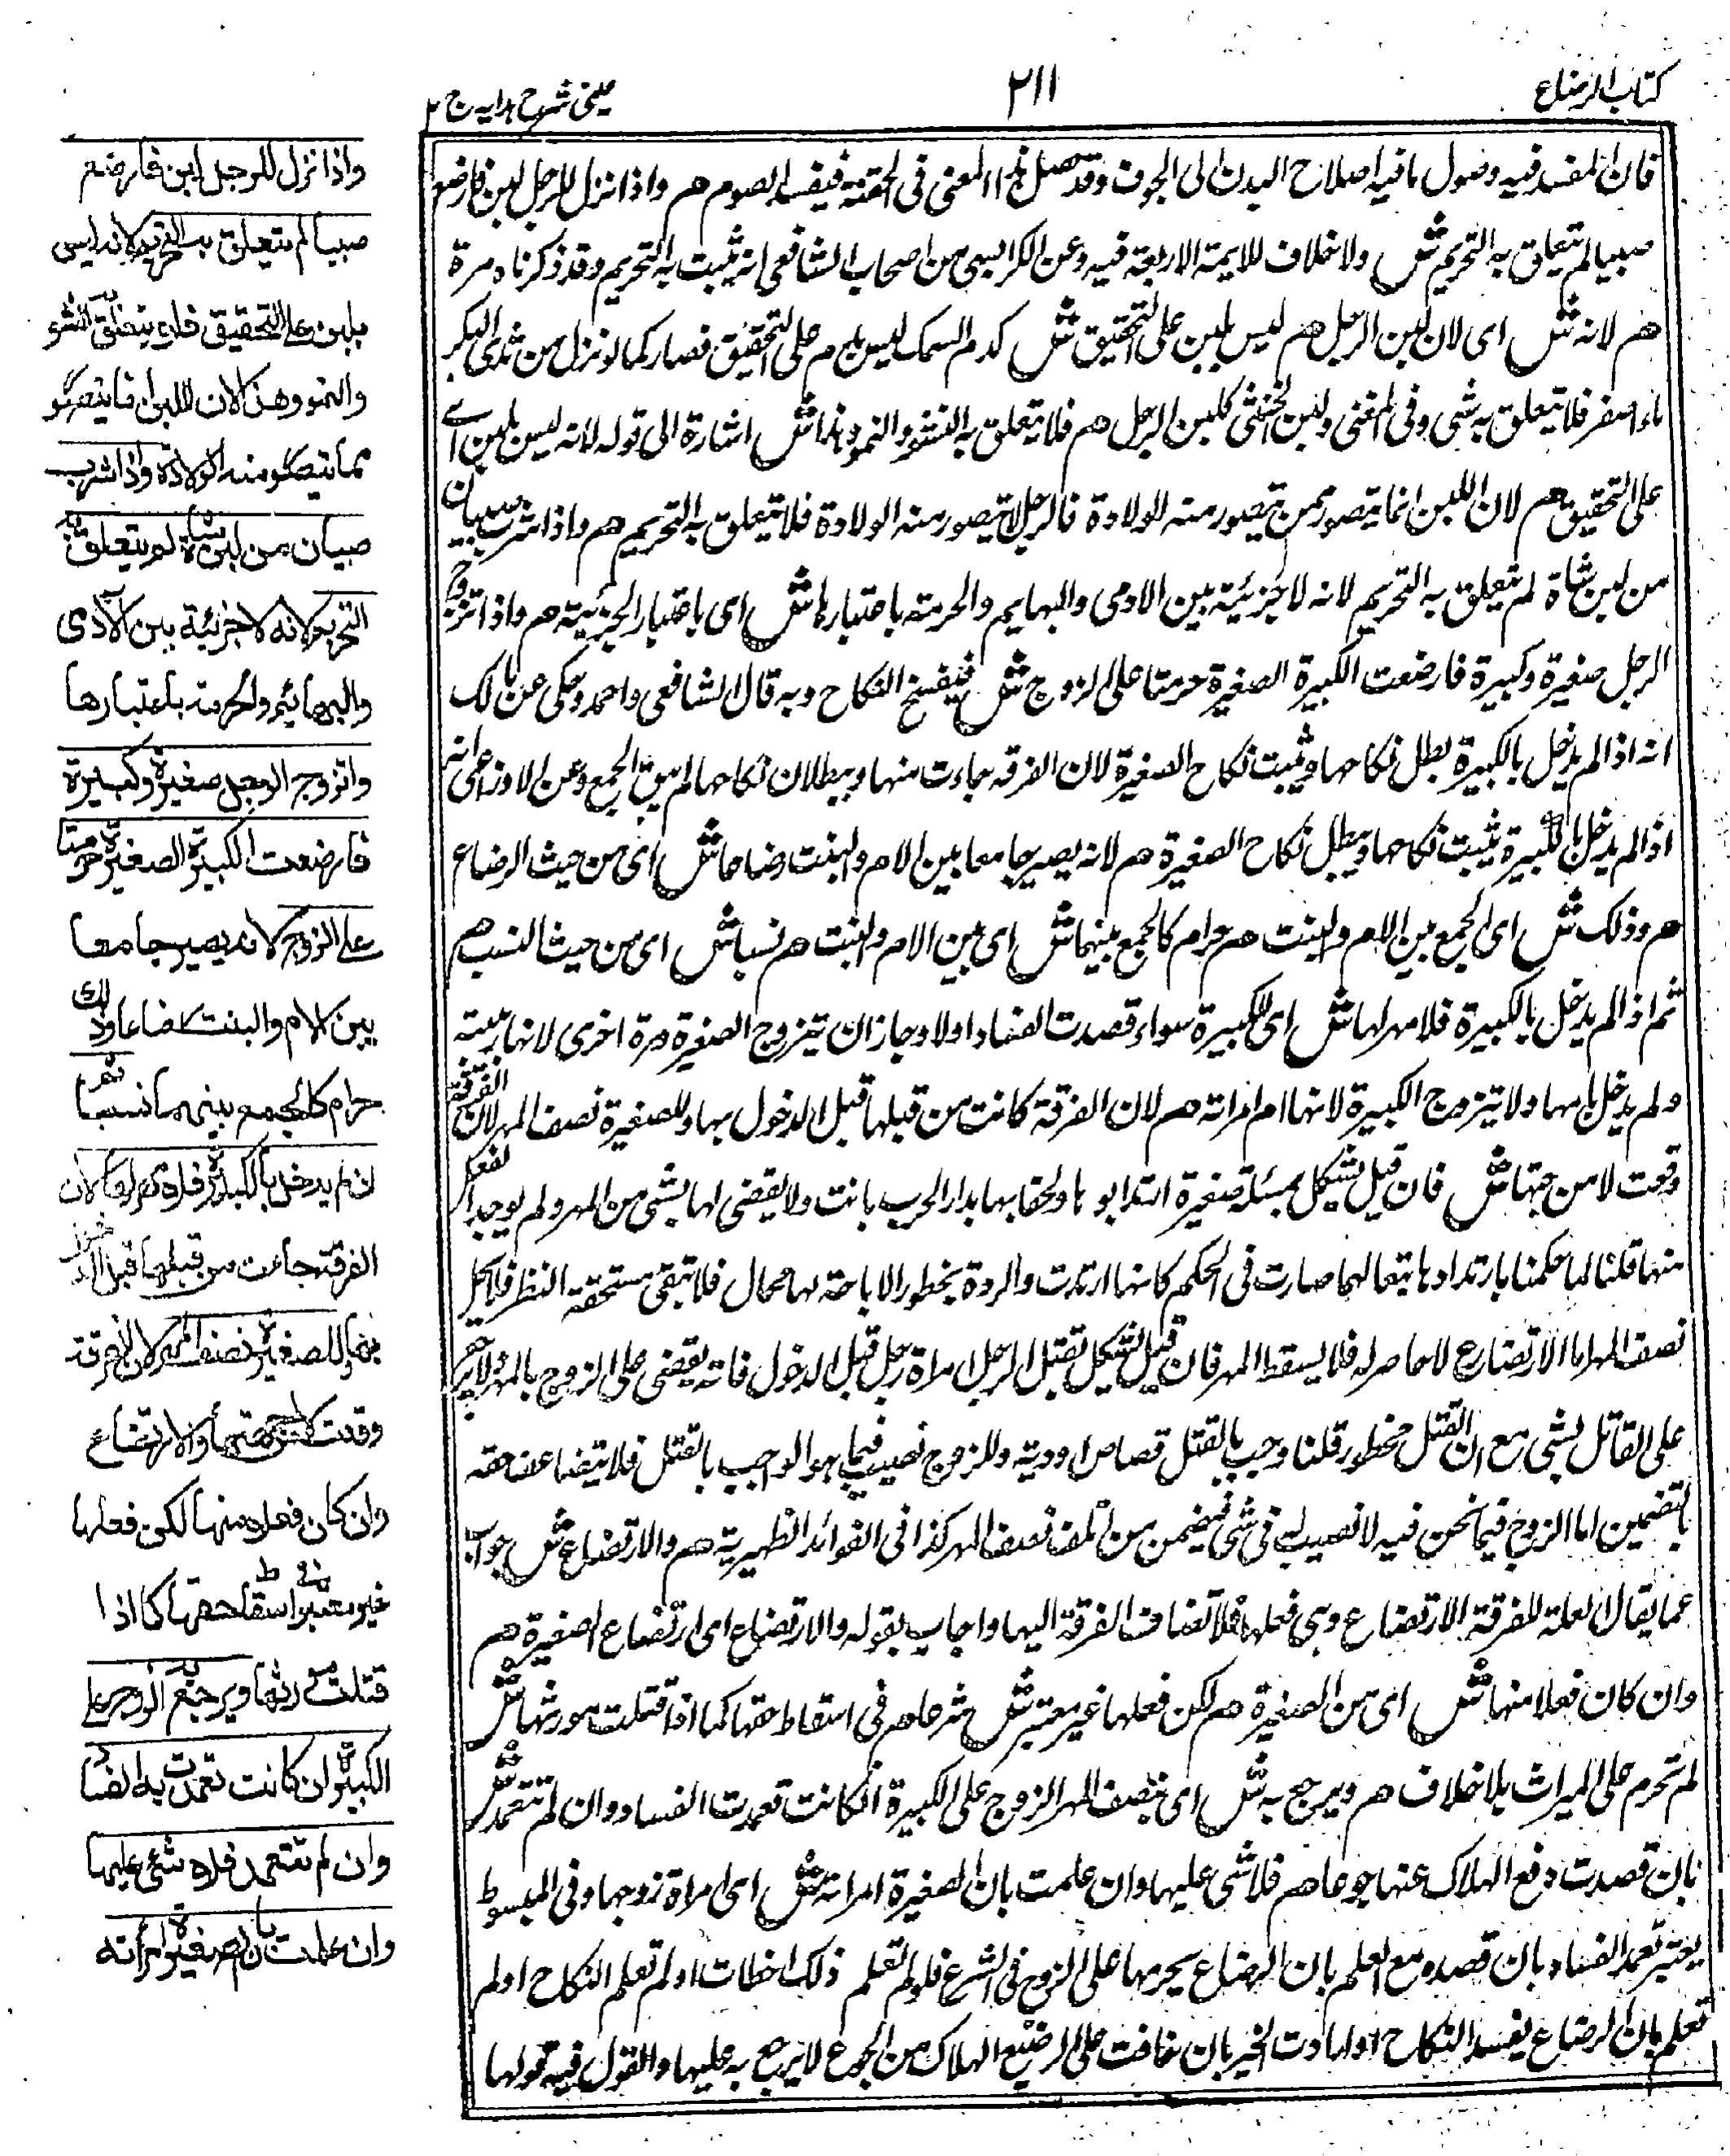 كتاب الرضاع
٢١١
عینی شرح هدایه ج ٢
فان المفسد فيه وصول ما فيه اصلاح البدن الى الجوف وقد حصل هذا المعنى فى الحقنة فيفسد الصوم هم واذا نزل للرجل لبن فارضع
صبيا لم يتعلق به التحريم ش ولا خلاف للايمة الاربعة فيه وعن الكرابيسى من اصحاب الشافعى انه يثبت به التحريم وقد ذكرناه مرة
هم لانه ش اى لان لبن الرجل هم ليس بلبن على التحقيق ش كدم السمك ليس بدم على التحقيق فصار كما لو نزل من ثدى البكر
ماء اصفر فلا يتعلق به شى وفى المغنى ولبن الخنثى كلبن الرجل هم فلا يتعلق به النشو والنمو وهذا ش اشارة الى قوله لانه ليس بلبن اے
على التحقيق هم لان اللبن انما يتصور ممن يتصور منه الولادة فالرجل لا يتصور منه الولادة فلا يتعلق به التحريم هم واذا شرب صبيان
من لبن شاة لم يتعلق به التحريم لانه لا جزئية بين الادمى والبهايم والحرمة باعتبارها ش اى باعتبار الجزئية هم واذا تزوج
الرجل صغيرة وكبيرة فارضعت الكبيرة الصغيرة حرمتا على الزوج ش فيفسخ النكاح وبه قال الشافعى واحمد وحكى عن مالك
انه اذا لم يدخل بالكبيرة بطل نكاحها ويثبت نكاح الصغيرة لان الفرقة جاءت منها وببطلان نكاحها لم يبق الجمع وعن الاوزاعى انه
اذا لم يدخل بالكبيرة يثبت نكاحها ويبطل نكاح الصغيرة هم لانه يصير جامعا بين الام والبنت رضاعا ش اى من حيث الرضاع
هم وذلك ش اى الجمع بين الام والبنت هم حرام كالجمع بينهما ش اى بين الام والبنت هم نسبا ش اى من حيث النسب هم
ثم اذا لم يدخل بالكبيرة فلا مهر لها ش اى للكبيرة سواء قصدت الفساد اولا وجاز ان يتزوج الصغيرة مرة اخرى لانها ربيبته
ولم يدخل بامها ولا يتزوج الكبيرة لانها ام امراته هم لان الفرقة كانت من قبلها قبل الدخول بها وللصغيرة نصف المهر لان الفرقة
وقعت لا من جهتها ش فان قيل يشكل بمسئلة صغيرة ارتد ابوها ولحقا بها بدار الحرب بانت ولا يقضى لها بشى من المهر ولم يوجد الفعل
منها قلنا لما حكمنا بارتدادها تبعا لهما صارت فى الحكم كانها ارتدت والردة محظور الاباحة لها بحال فلا تبقى مستحقة النظر فلا تحل
نصف المهر اما الارتضاع لا حاصر له فلا يسقط المهر فان قيل يشكل بقتل الرجل امراة رجل قبل الدخول فانه يقضى على الزوج بالمهر ولا يرجع
على القاتل بشى مع ان القتل محظور قلنا وجب بالقتل قصاص او ودية وللزوج نصيب فيما هو الواجب بالقتل فلا يتضاعف حقه
بالتضمين اما الزوج فيما نحن فيه لا نصيب له فى شى فيضمن من اتلف نصف المهر كذا فى الفوائد الظهيرية هم والارتضاع ش جواب
عما يقال العلة للفرقة الارتضاع وهى فعلها فلا تضاف الفرقة اليها واجاب بقوله والارتضاع اى ارتضاع الصغيرة هم
وان كان فعلا منها ش اى من الصغيرة هم لكن فعلها غير معتبر ش شرعا هم فى اسقاط حقها كما اذا قتلت مورثها ش
لم تحرم على الميراث بلا خلاف هم ويرجع به ش اى بنصف المهر الزوج على الكبيرة ان كانت تعمدت الفساد وان لم تتعمد ش
بان قصدت دفع الهلاك عنها جوعا هم فلا شى عليها وان علمت بان الصغيرة امراته ش اى امراة زوجها وفى المبسوط
يعتبر تعمد الفساد بان قصده مع العلم بان الرضاع يحرمها على الزوج فى الشرع فلو لم تعلم ذلك اخطات او لم تعلم النكاح او لم
تعلم بان الرضاع يفسد النكاح او ارادت الخير بان خافت على الرضيع الهلاك من الجوع لا يرجع به عليها والقول فيه قولها
واذا نزل للرجل لبن فارضع
صبيا لم يتعلق به التحريم لانه ليس
بلبن على التحقيق فلا يتعلق به النشو
والنمو وهذا لان اللبن انما يتصور
مما يتصور منه الولادة واذا شرب
صبيان من لبن شاة لم يتعلق به
التحريم لانه لا جزئية بين الآدمى
والبهائم والحرمة باعتبارها
واتزوج الرجل صغيرة وكبيرة
فارضعت الكبيرة الصغيرة حرمتا
على الزوج لانه يصير جامعا
بين الام والبنت رضاعا وذلك
حرام كالجمع بينهما نسبا ثم
ان لم يدخل بالكبيرة فلا مهر لها لان
الفرقة جاءت من قبلها قبل الدخول
بها وللصغيرة نصف المهر لان الفرقة
وقعت لا من جهتها والارتضاع
وان كان فعلا منها لكن فعلها
غير معتبر فى اسقاط حقها كما اذا
قتلت مورثها ويرجع به الزوج على
الكبيرة ان كانت تعمدت به الفساد
وان لم تتعمد فلا شئ عليها
وان علمت بان الصغيرة امرأته